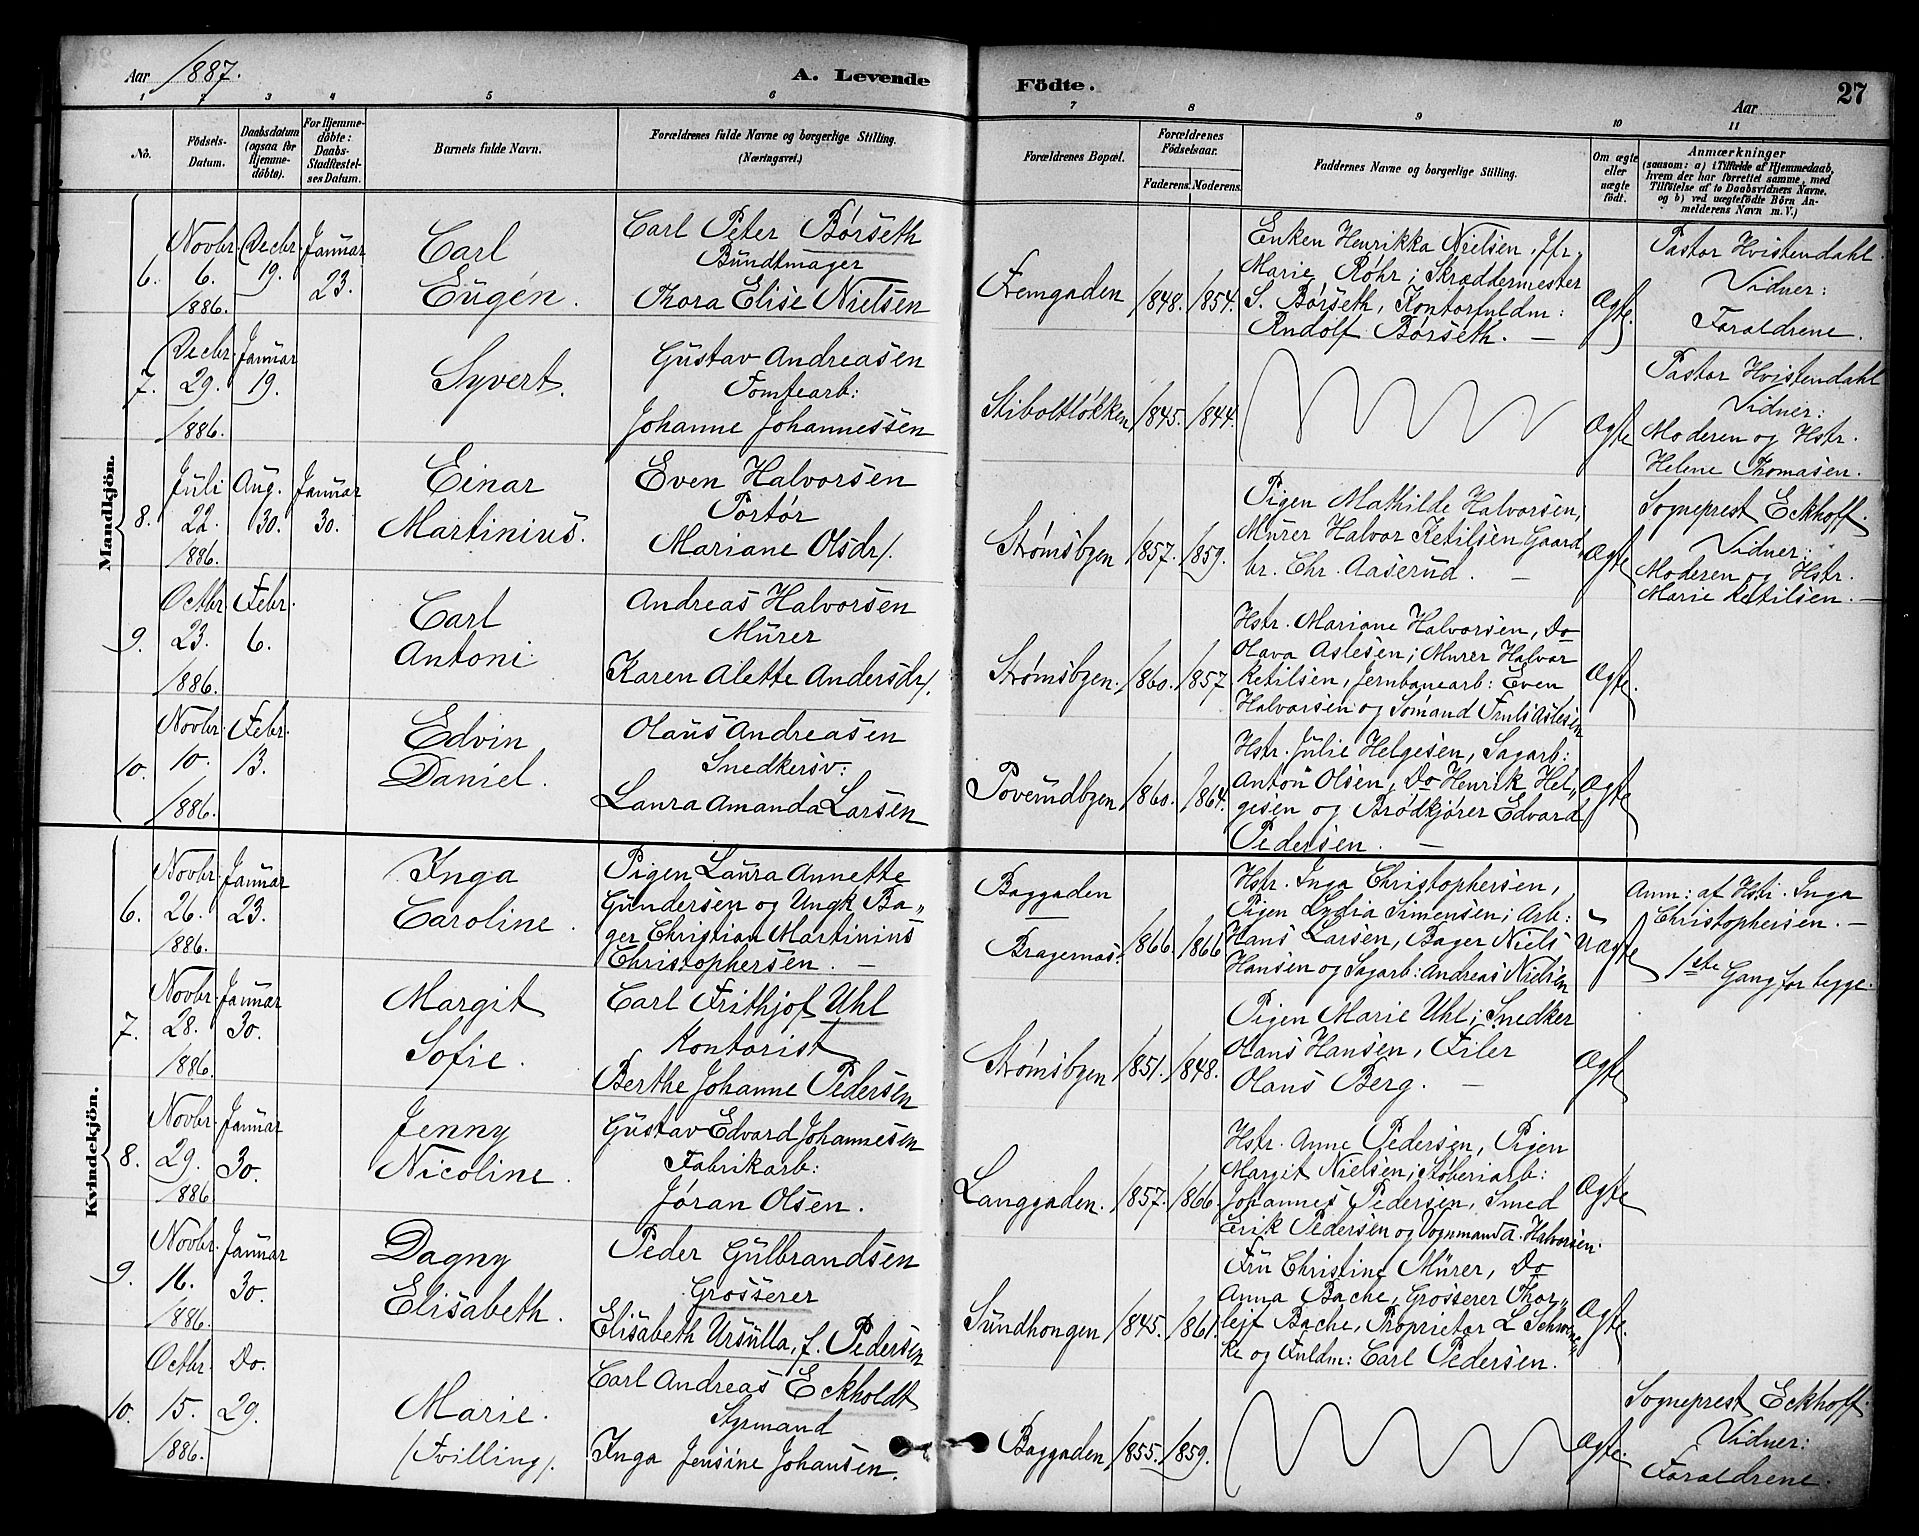 Aar 1887.
A. Levende
Födte.
Aar
27
1 2 3 4 5 6 7 8 9 10 11
No.
Födsels-
Datum.
Daabsdatum
(ogsaa for
Hjemme-
döbte).
For Hjemme-
döbte:
Daabs-
Stadfæstel-
ses Datum.
Barnets fulde Navn.
Forældrenes fulde Navne og borgerlige Stilling.
(Næringsvei.)
Forældrenes Bopæl.
Forældrenes
Födselsaar.
Faderens.
Moderens.
Faddernes Navne og borgerlige Stilling.
Om ægte
eller
uægte
födt.
Anmærkninger
(saasom: a) i Tilfælde af Hjemmedaab,
hvem der har forrettet samme, med
Tilföielse af to Daabsvidners Navne.
og b) ved uægtefödte Börn An-
melderens Navn m. V.)
Mandkjön.
6.
Novbr.
6.
1886.
Decbr.
19.
Januar
23.
Carl
Eugén.
Carl Peter Børseth
Bundtmager
Thora Elise Nielsen
Fremgaden
1848.
1854.
Enken Henrikka Nielsen, Jfr.
Marie Røhr; Skræddermester
S. Børseth, Kontorfuldm:
Rudolf Børseth. —
Ægte.
Pastor Hvistendahl.
Vidner:
Forældrene.
7.
Decbr.
29.
1886.
Januar
19.
Syvert.
Gustav Andreasen
Tomtearb:
Johanne Johannessen
Stiboltløkken
1845.
1844.
Ægte
Pastor Hvistendahl
Vidner:
Moderen og Hstr.
Helene Thomasen.
8.
Juli
22.
1886.
Aug.
30.
Januar
30.
Einar
Martinius.
Even Halvorsen
Portør
Mariane Olsdr/.
Strømsbyen
1857.
1859.
Pigen Mathilde Halvorsen,
Murer Halvor Ketilsen, Gaard„
br. Chr. Aaserud. —
Ægte
Sogneprest Eckhoff.
Vidner:
Moderen og Hstr.
Marie Ketilsen. —
9.
Octbr.
23.
1886.
Febr.
6.
Carl
Antoni
Andreas Halvorsen
Murer
Karen Alette Andersdr/.
Strømsbyen.
1860.
1857
Hstr. Mariane Halvorsen, Do
Olava Aslesen; Murer Halvor
Ketilsen, Jernbanearb: Even
Halvorsen og Sømand Aslesen
Ægte.
10.
Novbr.
10.
1886.
Febr.
13.
Edvin
Daniel.
Olaus Andreasen
Snedkersv:
Laura Amanda Larsen
Poverudbyen
1860.
1864.
Hstr. Julie Helgesen, Sagarb:
Anton Olsen, Do Henrik Hel„
gesen og Brødkjører Edvard
Pedersen. —
Ægte
Kvindekjön.
6.
Novbr.
26.
1886.
Januar
23.
Inga
Caroline.
Pigen Laura Annette
Gundersen og Ungk. Ba„
ger Christian Martinius
Christophersen. —
Baggaden
Bragernæs.
1866.
1866
Hstr. Inga Christophersen,
Pigen Lydia Simensen; Arb:
Hans Larsen, Bager Niels
Hansen og Sagarb: Andreas Nielsen
Uægte
Anm: af Hstr. Inga
Christophersen. —
1ste Gang for begge.
7.
Novbr.
28.
1886.
Januar
30.
Margit
Sofie.
Carl Frithjof Uhl
Kontorist
Berthe Johanne Pedersen
Strømsbyen
1851.
1848.
Pigen Marie Uhl; Snedker
Olaus Hansen, Filer
Olaus Berg. —
Ægte
8.
Novbr.
29.
1886
Januar
30.
Jenny
Nicoline.
Gustav Edvard Johannesen
Fabrikarb:
Jøran Olsen.
Langgaden.
1857.
1866.
Hstr. Anne Pedersen, Pigen
Margit Nielsen; Støberiarb:
Johannes Pedersen, Smed
Erik Pedersen og Vognmand A. Halvorsen.
Ægte
9.
Novbr.
16.
1886.
Januar
30.
Dagny
Elisabeth.
Peder Gulbrandsen
Grosserer
Elisabeth Ursulla, f. Pedersen
Sundhougen
1845.
1861.
Fru Christine Mürer, Do
Anna Bache, Grosserer Thor„
leif Bache, Proprietær L Schwen„
ke og Fuldm: Carl Pedersen.
Ægte.
10.
Octbr.
15.
1886.
Do.
29.
Marie.
/Tvilling/.
Carl Andreas Eckholdt
Styrmand
Inga Jensine Johansen.
Baggaden
1855.
1859.
Ægte.
Sogneprest Eckhoff.
Vidner:
Forældrene.